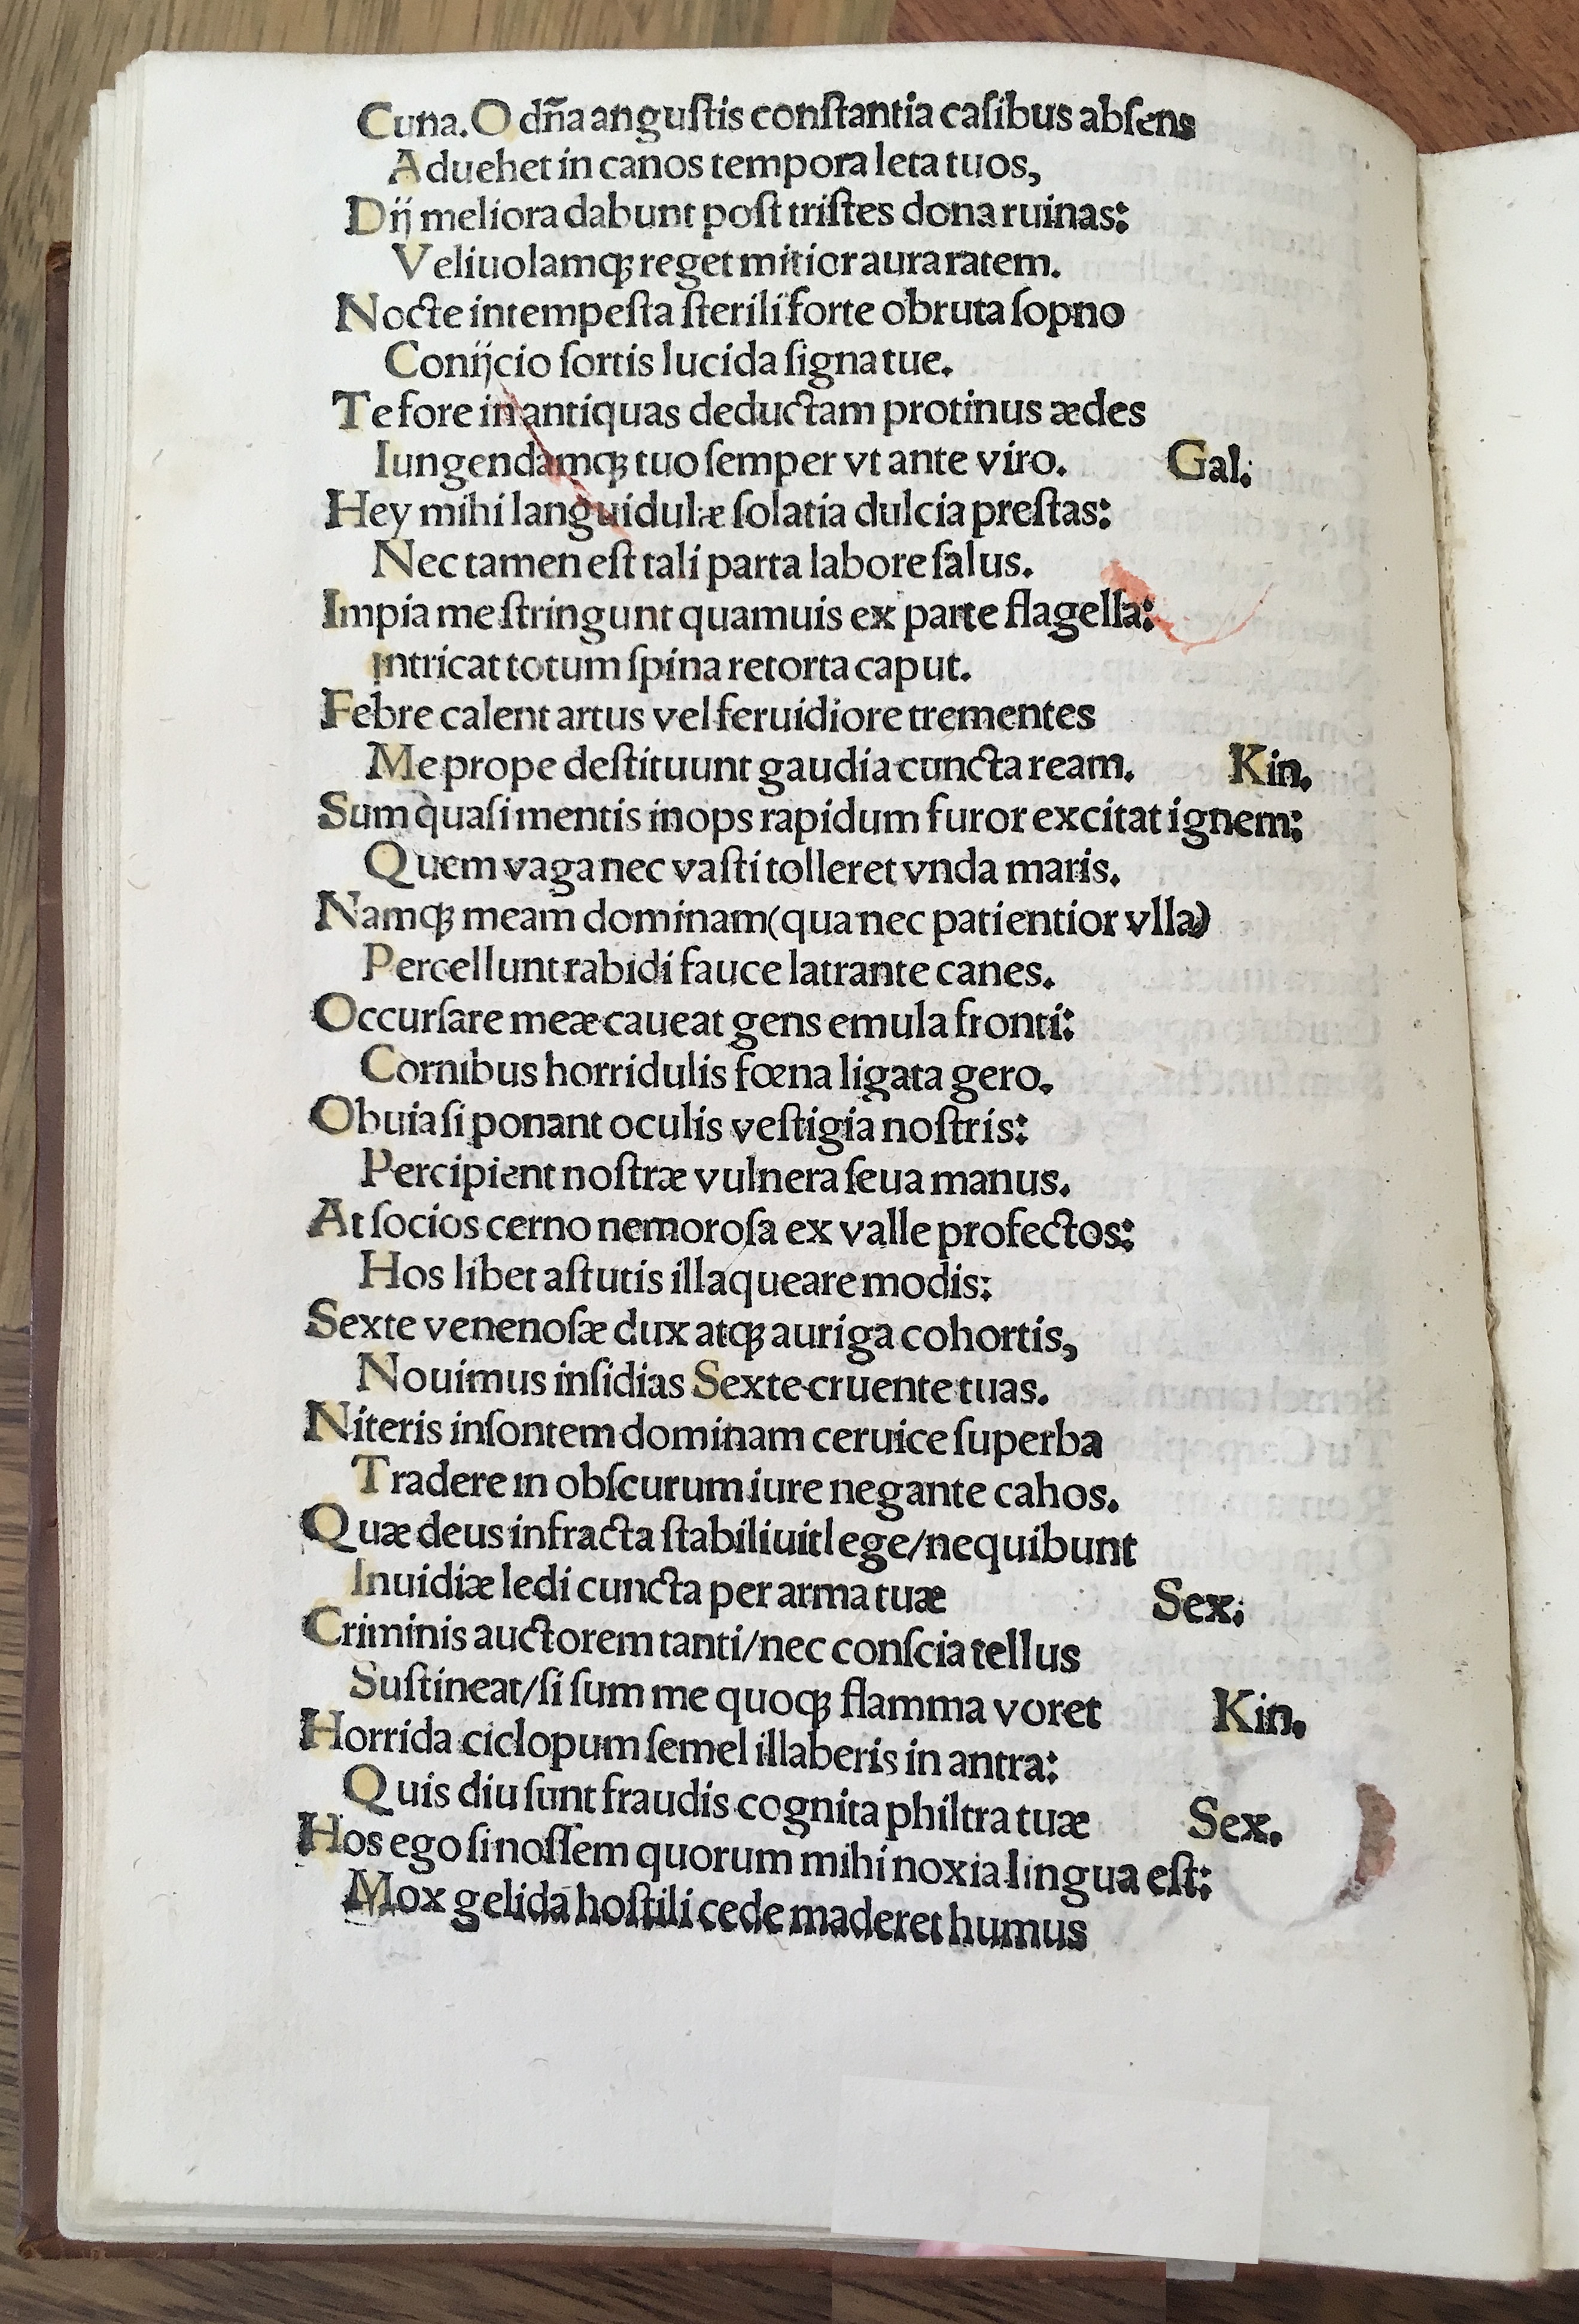 Cuna. O dña anguſtis conſtantia caſibus abſens
Aduehet in canos tempora leta tuos,
Dij meliora dabunt poſt triſtes dona ruinas:
Veliuolamqꝫ reget mitior aura ratem.
Nocte intempeſta ſterili forte obruta ſopno
Conijcio ſortis lucida ſigna tue.
Te fore in antiquas deductam protinus ædes
Iungendamqꝫ tuo ſemper vt ante viro. Gal.
Hey mihi languidulæ ſolatia dulcia preſtas:
Nec tamen eſt tali parta labore ſalus.
Impia me ſtringunt quamuis ex parte flagella:
Intricat totum ſpina retorta caput.
Febre calent artus vel feruidiore trementes
Me prope deſtituunt gaudia cuncta ream. Kin.
Sum quaſi mentis inops rapidum furor excitat ignem:
Quem vaga nec vaſti tolleret vnda maris.
Namqꝫ meam dominam (qua nec patientior vlla)
Percellunt rabidi fauce latrante canes.
Occurſare meæ caueat gens emula fronti:
Cornibus horridulis fœna ligata gero.
Obuia ſi ponant oculis veſtigia noſtris:
Percipient noſtræ vulnera ſeua manus.
At ſocios cerno nemoroſa ex valle profectos:
Hos libet aſtutis illaqueare modis:
Sexte venenoſæ dux atqꝫ auriga cohortis,
Nouimus inſidias Sexte cruente tuas.
Niteris inſontem dominam ceruice ſuperba
Tradere in obſcurum iure negante cahos.
Quæ deus infracta ſtabiliuit lege/nequibunt
Inuidiæ ledi cuncta per arma tuæ Sex.
Criminis auctorem tanti/nec conſcia tellus
Suſtineat/ſi ſum me quoqꝫ flamma voret Kin.
Horrida ciclopum ſemel illaberis in antra:
Quis diu ſunt fraudis cognita philtra tuæ Sex.
Hos ego ſi noſſem quorum mihi noxia lingua eſt:
Mox gelida hoſtili cede maderet humus